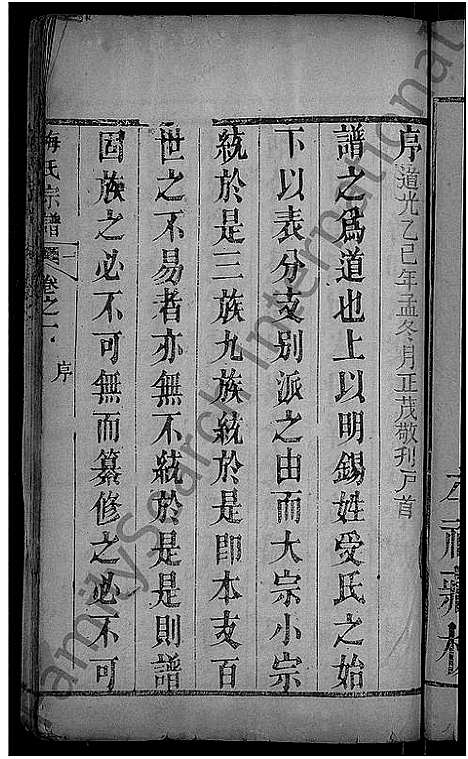 序 道光乙巳年孟冬月正茂敬刋戸首
譜之爲道也上以明錫姓受氏之始
下以表分支别派之由而大宗小宗
統於是三族九族統於是即本支百
世之不易者亦無不統於是是則譜
固族之必不可無而纂修之必不可
梅氏宗譜 卷之一 序
FamilySearch International